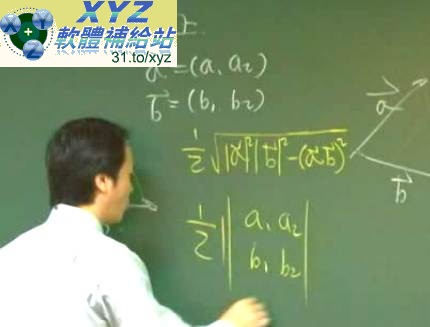 XYZ
軟體補給站
31.to/xyz
a⃗ = (a₁ a₂)
b⃗ = (b₁ b₂)
½ √|a⃗|²|b⃗|² - (a⃗·b⃗)²
½ || a₁ a₂
b₁ b₂ |
a⃗
b⃗